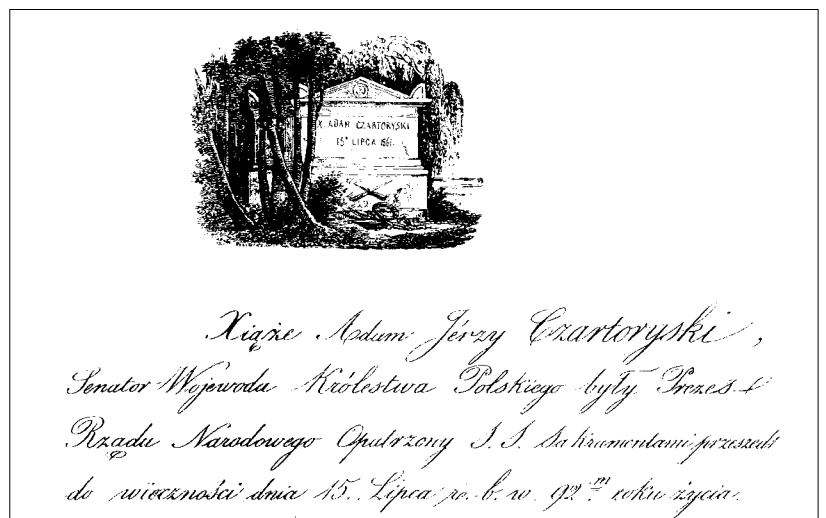 X. ADAM CZARTORYSKI
15º LIPCA 1861.
Xiąże Adam Jérzy Czartoryski,
Senator Wojewoda Królestwa Polskiego były Prezes
Rządu Narodowego Opatrzony S. S. Sakramentami przeszedł
do wieczności dnia 15. Lipca r. b. w 92m roku życia.